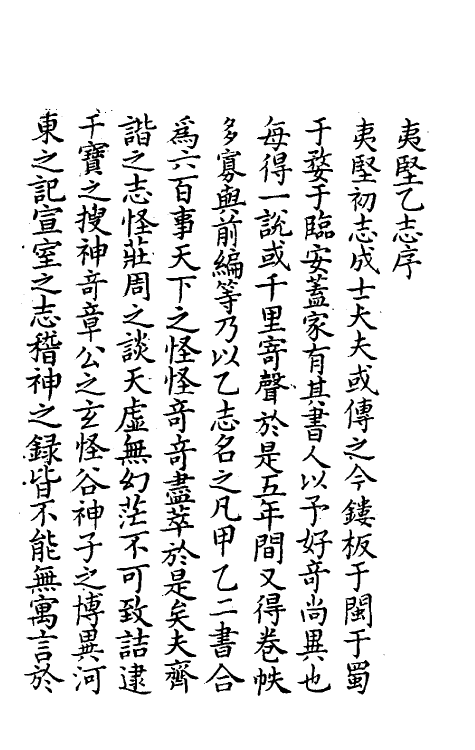 夷堅乙志序
夷堅初志成士大夫或傳之今鏤板于閩于蜀
于婺于臨安蓋家有其書人以予好竒尚異也
每得一說或千里寄聲於是五年間又得卷帙
多寡與前編等乃以乙志名之凡甲乙二書合
爲六百事天下之怪怪竒竒盡萃於是矣夫齊
諧之志怪莊周之談天虛無幻茫不可致詰逮
干寶之搜神竒章公之玄怪谷神子之博異河
東之記宣室之志稽神之録皆不能無寓言於